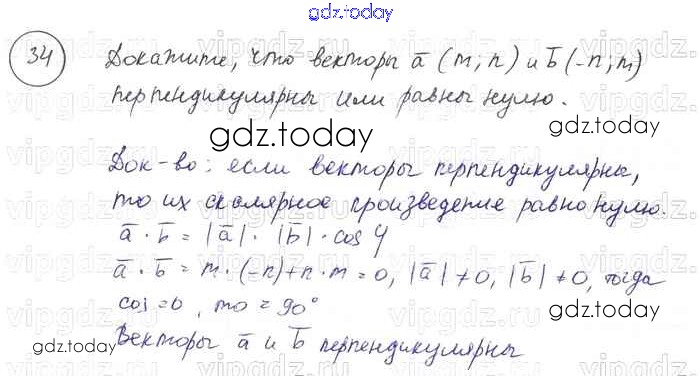 gdz.today
34 Докажите, что векторы a̅ (m; n) и b̅ (-n; m)
перпендикулярны или равны нулю.
gdz.today
Док-во: если векторы перпендикулярны,
gdz.today
то их скалярное произведение равно нулю.
a̅ · b̅ = |a̅| · |b̅| · cos φ
a̅ · b̅ = m · (-n) + n · m = 0, |a̅| ≠ 0, |b̅| ≠ 0, тогда
cos = 0, то = 90°
Векторы a̅ и b̅ перпендикулярны
gdz.today
gdz.today